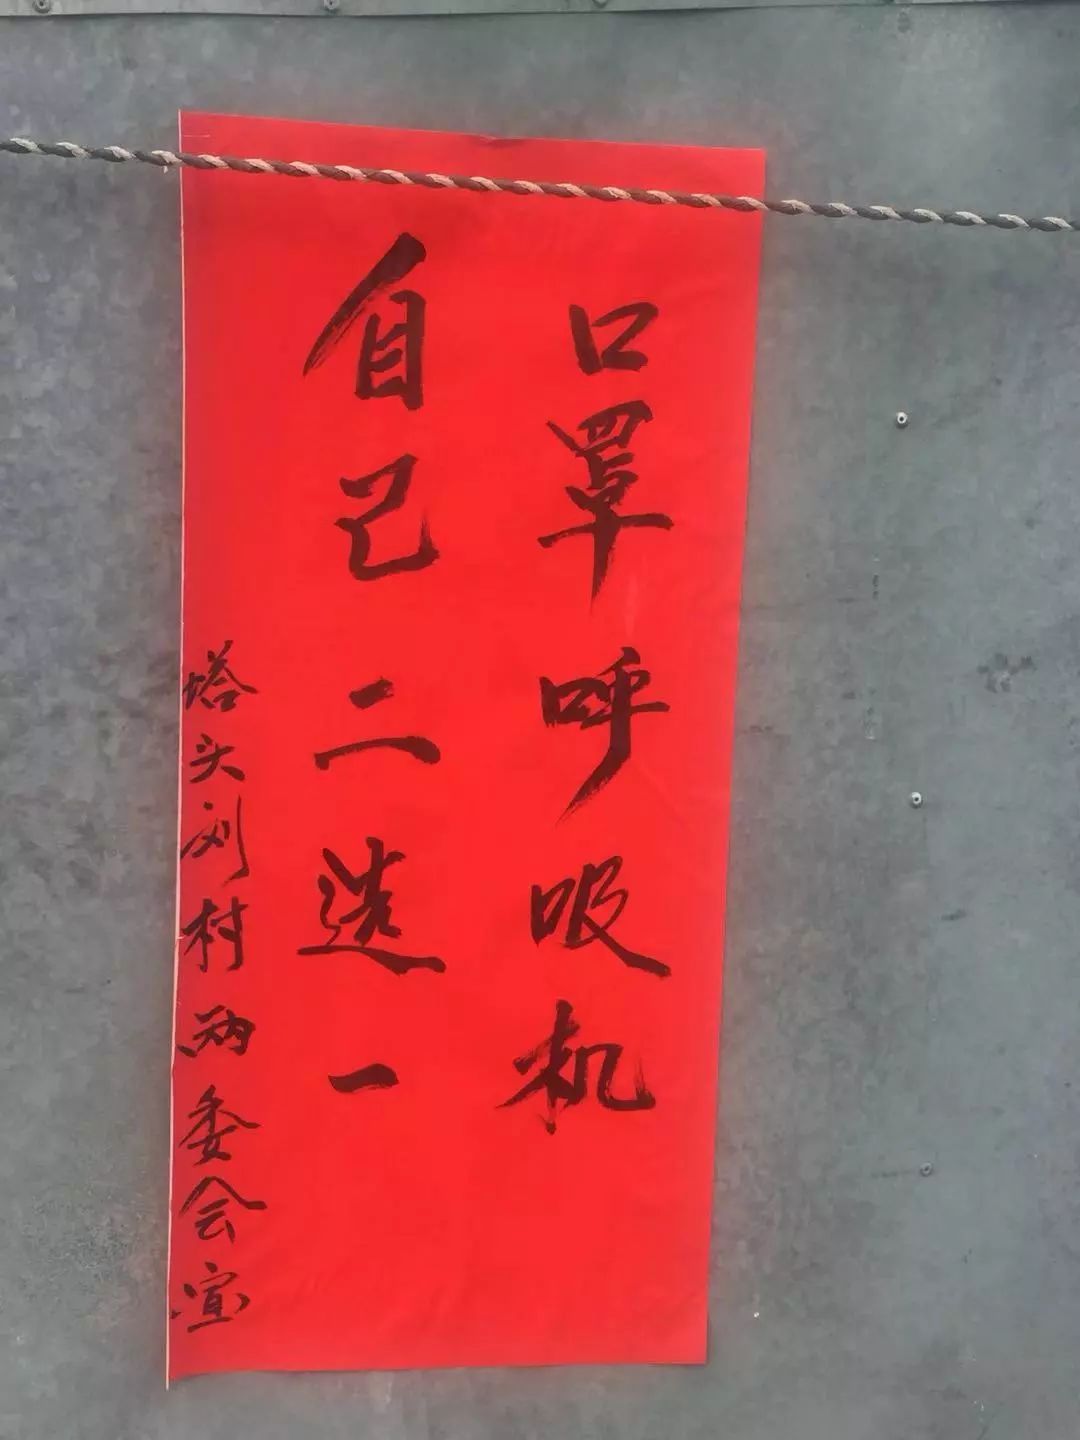 口罩呼吸机
自己二选一
塔头刘村两委会宣